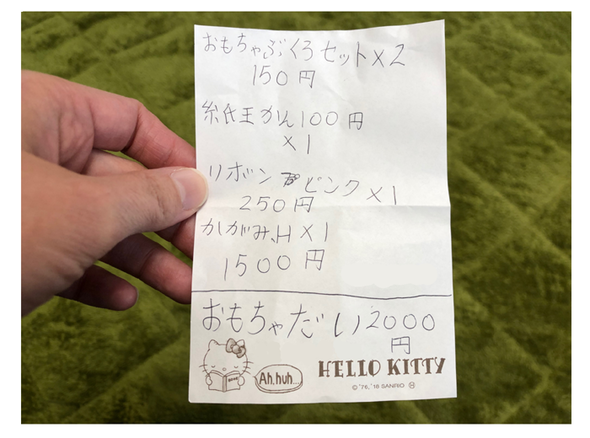 おもちゃぶくろセット×2
150円
紙王かん100円
×1
リボン ピンク×1
250円
かがみ、H×1
1500円
おもちゃだい2000
円
Ah, huh...
HELLO KITTY
© '76, '18 SANRIO Ⓗ